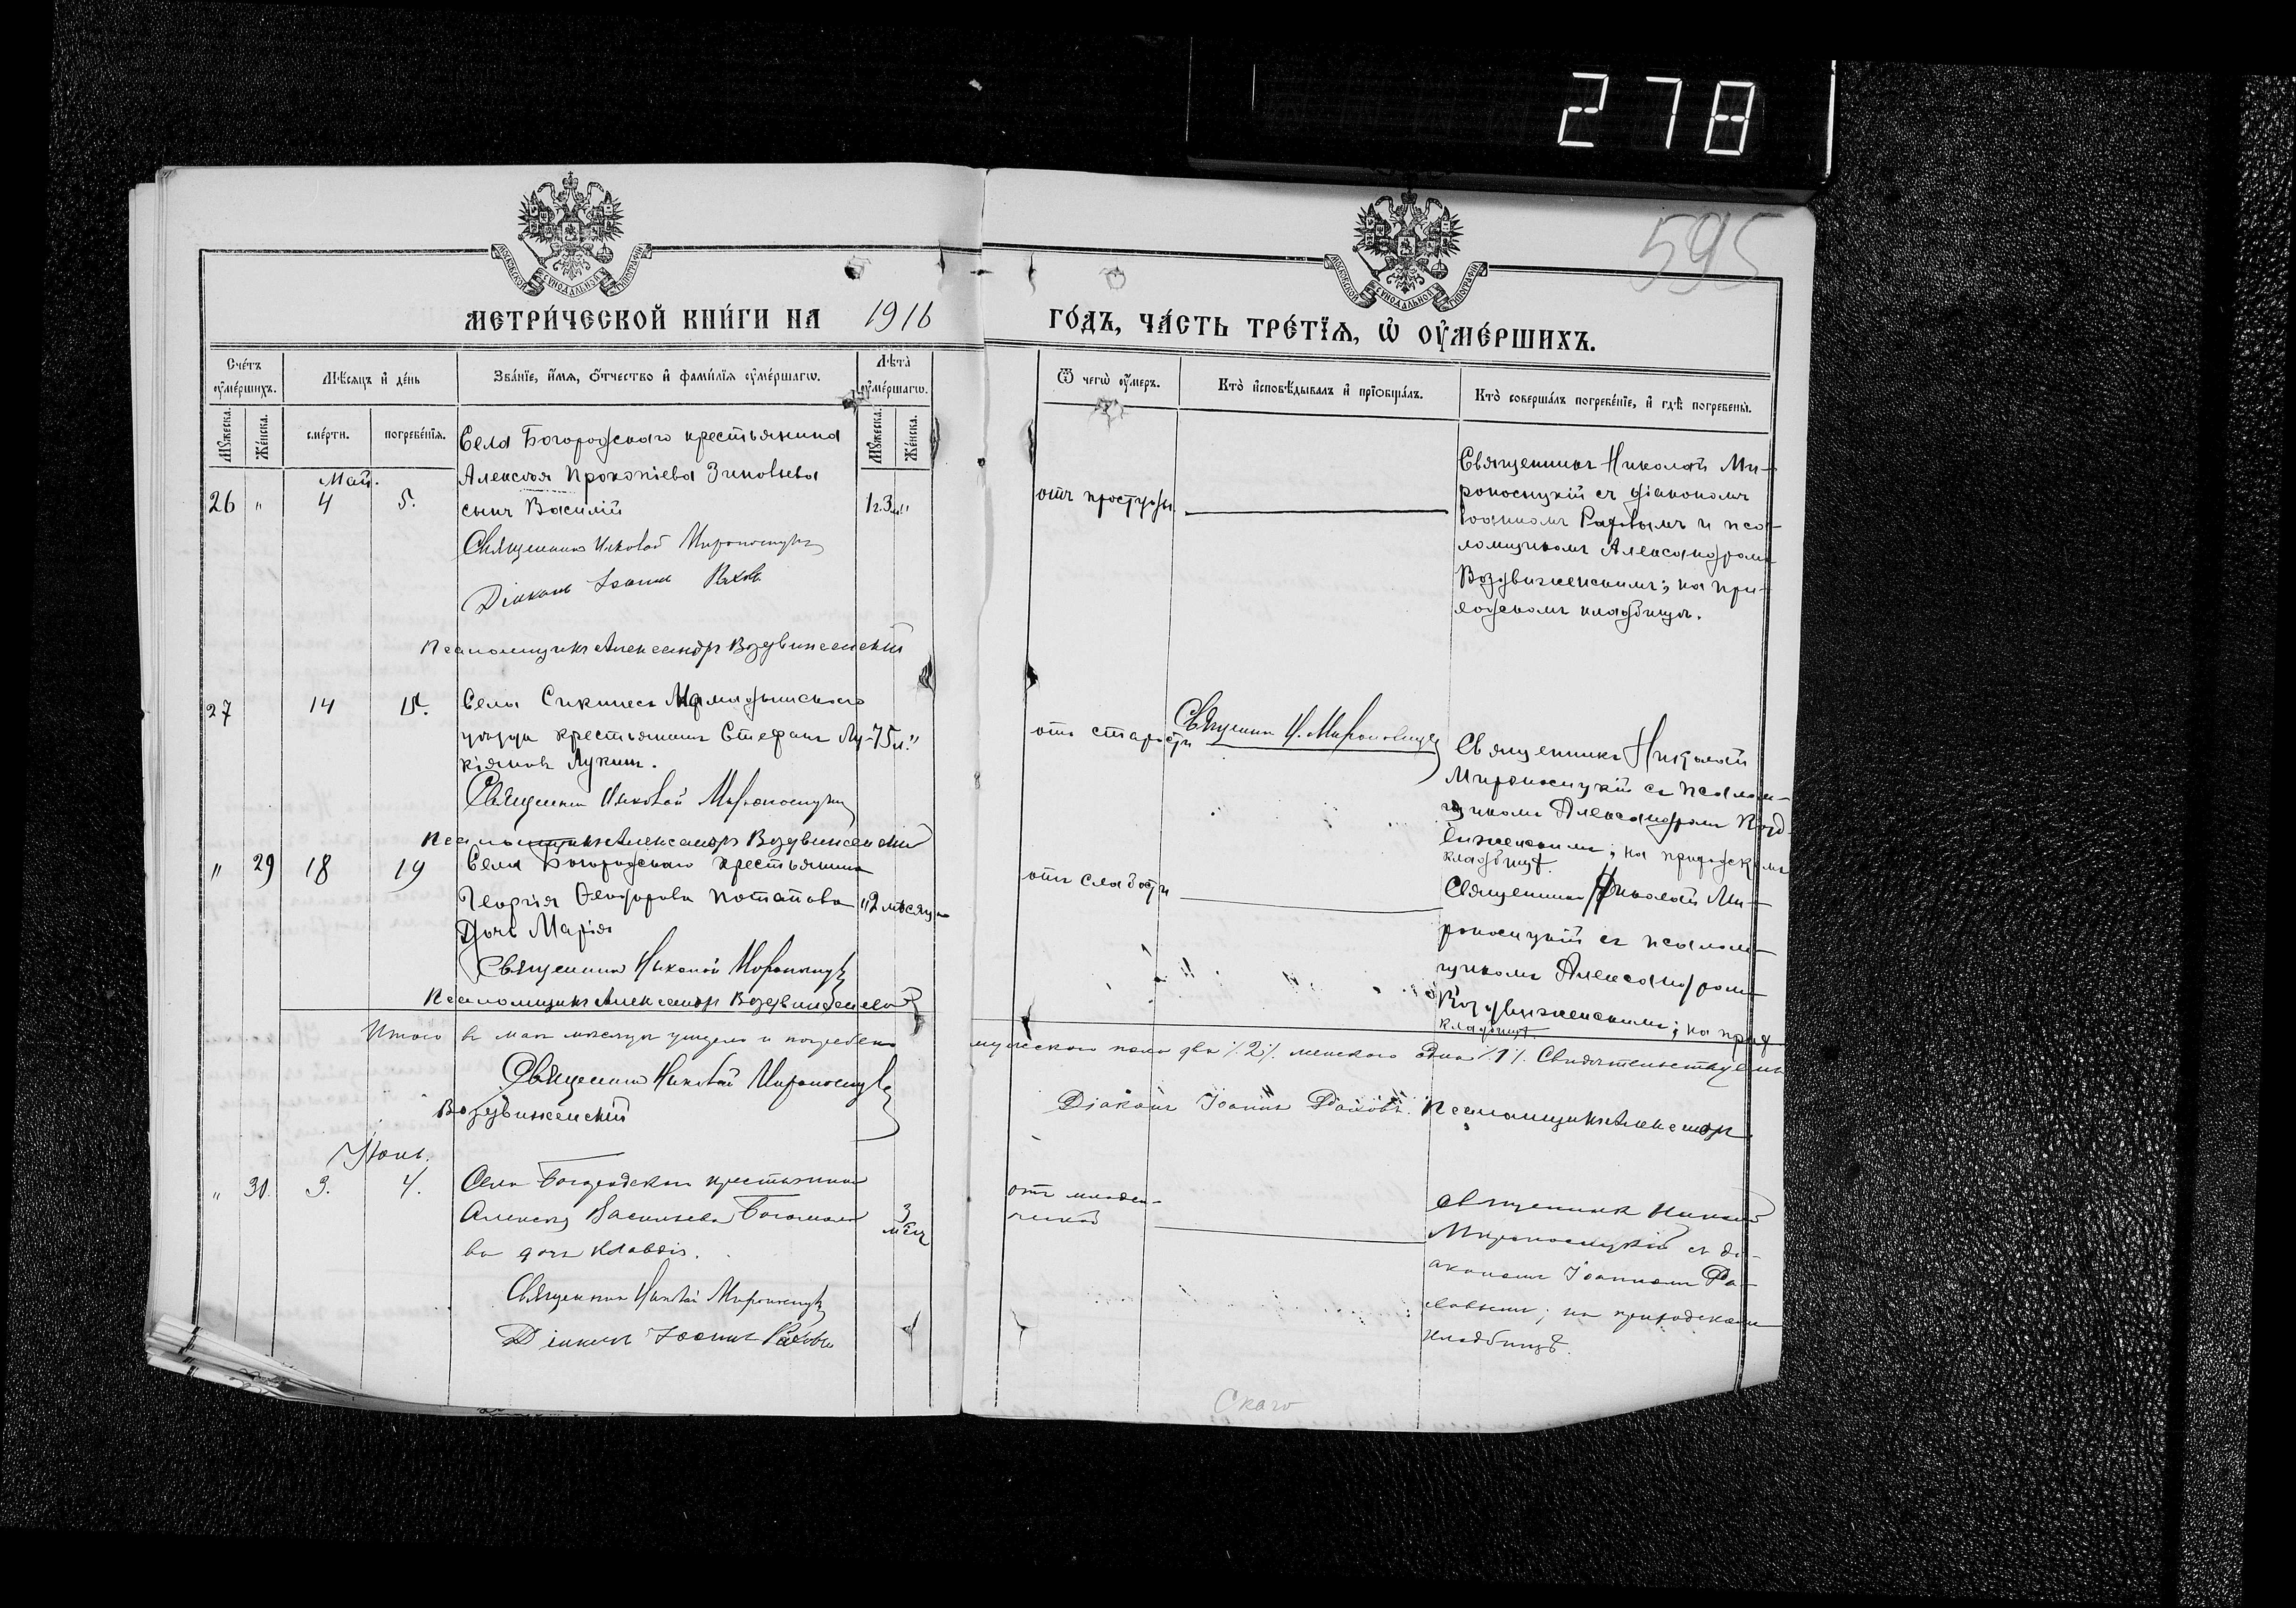 278
595
МОСКОВСКОЙ СѴНОДАЛЬНОЙ ТИПОГРАФІИ
МОСКОВСКОЙ СѴНОДАЛЬНОЙ ТИПОГРАФІИ
МЕТРИ́ЧЕСКОЙ КНИ́ГИ НА 1916
ГО́ДЪ, ЧА́СТЬ ТРЕ́ТЇѦ, Ѡ҆ ОУ҆МЕ́РШИХЪ.
Сче́тъ оу҆ме́ршихъ.
Мѣ́сяцъ и҆ де́нь
Зва́нїе, и҆́мя, ѻ҆́тчество и҆ фами́лїя оу҆ме́ршагѡ.
Лѣта̀ оу҆ме́ршагѡ.
Мꙋ́жеска.
Же́нска.
сме́рти.
погребе́нїя.
Мꙋ́жеска.
Же́нска.
Ѿ чегѡ̀ оу҆́меръ.
Кто̀ и҆сповѣ́дывалъ и҆ прїѡбща́лъ.
Кто̀ соверша́лъ погребе́нїе, и҆ гдѣ̀ погребены̀.
Май.
26 " 4 5.
Села Богородскаго крестьянина
Алексѣя Прокопіева Зиновьева
сынъ Василій
1г.3м."
Священникъ Николай Мироносицкій
Діаконъ Іоаннъ Раховъ
Псаломщикъ Александръ Воздвиженскій
отъ простуды
Священникъ Николай Ми-
роносицкій съ діакономъ
Іоанномъ Раховымъ и пса-
ломщикомъ Александромъ
Воздвиженскимъ; на при-
ходскомъ кладбищѣ.
27 14 15.
Села Мамадышскаго
уѣзда крестьянинъ Стефанъ Лу-
кіяновъ Лукин.
75 л."
Священникъ Николай Мироносицкій
Псаломщикъ Александръ Воздвиженскій
отъ старости
Священникъ Н. Мироносицкій
Священникъ Николай
Мироносицкій съ псалом-
щикомъ Александромъ Возд-
виженскимъ; на приходскомъ
кладбищѣ.
" 29 18 19
Села Богородскаго крестьянина
Георгія Ѳеодорова Потапова
Дочь Марія
"2 мѣсяца
Священникъ Николай Мироносицкій
Псаломщикъ Александръ Воздвиженскій
отъ слабости
Священникъ Николай Ми-
роносицкій съ псалом-
щикомъ Александромъ
Воздвиженскимъ; на прих
кладбищѣ.
Итого въ маѣ мѣсяцѣ умерло и погребено
мужескаго пола два %2% женскаго одна %1%. Свидѣтельствуемъ
Священникъ Николай Мироносицкій
Діаконъ Іоаннъ Раховъ. Псаломщикъ Александръ
Воздвиженскій
Іюнь.
" 30. 3. 4.
Села Богородскаго крестьянина
Алексѣя Васильева Богомоло
ва дочь Клавдія.
3 мѣсяц
Священникъ Николай Мироносицкій
Діаконъ Іоаннъ Раховъ
отъ младен-
ческой
Священникъ Николай
Мироносицкій съ ді-
акономъ Іоанномъ Ра-
ховымъ; на приходскомъ
кладбищѣ.
Скаго